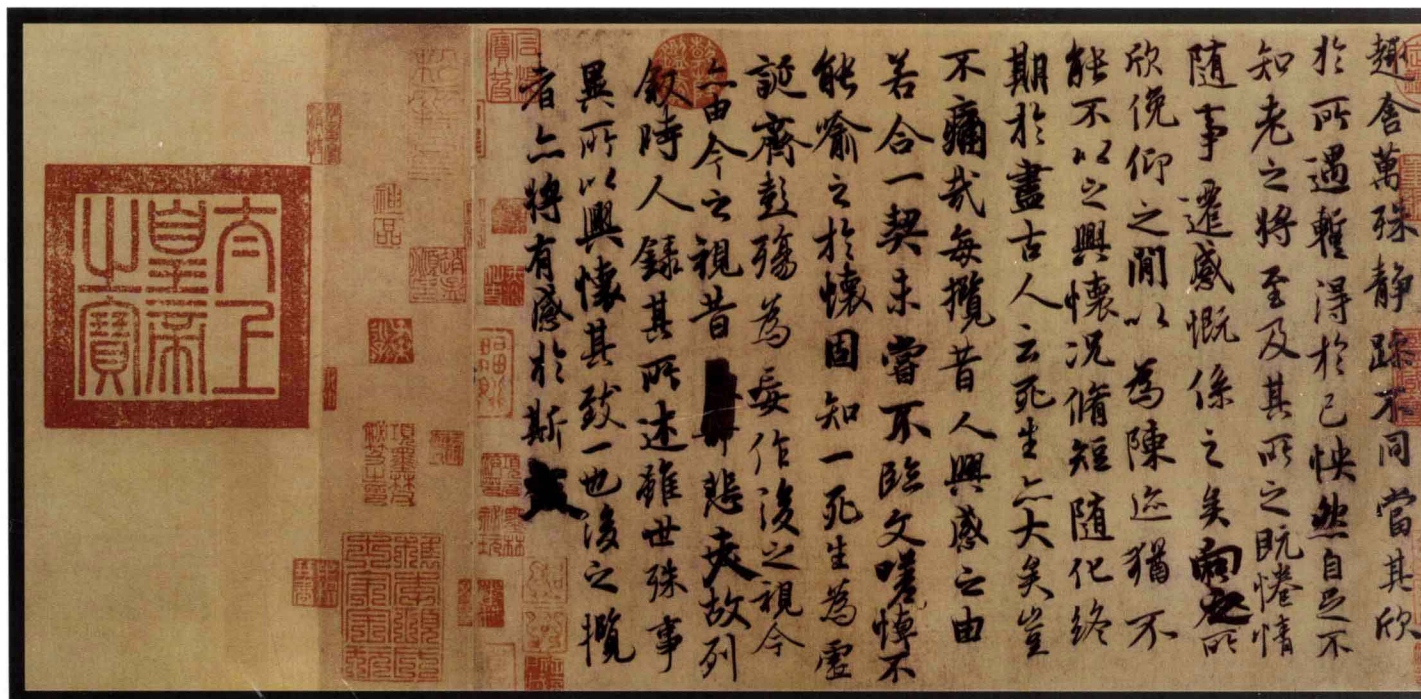 趣舍萬殊靜躁不同當其欣
於所遇暫得於己怏然自足不
知老之將至及其所之既惓情
随事遷感慨係之矣向之所
欣俛仰之閒以為陳迹猶不
能不以之興懷況脩短随化終
期於盡古人云死生亦大矣豈
不痛哉每攬昔人興感之由
若合一契未嘗不臨文嗟悼不
能喻之於懷固知一死生為虛
誕齊彭殤為妄作後之視今
亦由今之視昔悲夫故列
敘時人錄其所述雖世殊事
異所以興懷其致一也後之攬
者亦將有感於斯文
神品
太上
皇帝
之寶